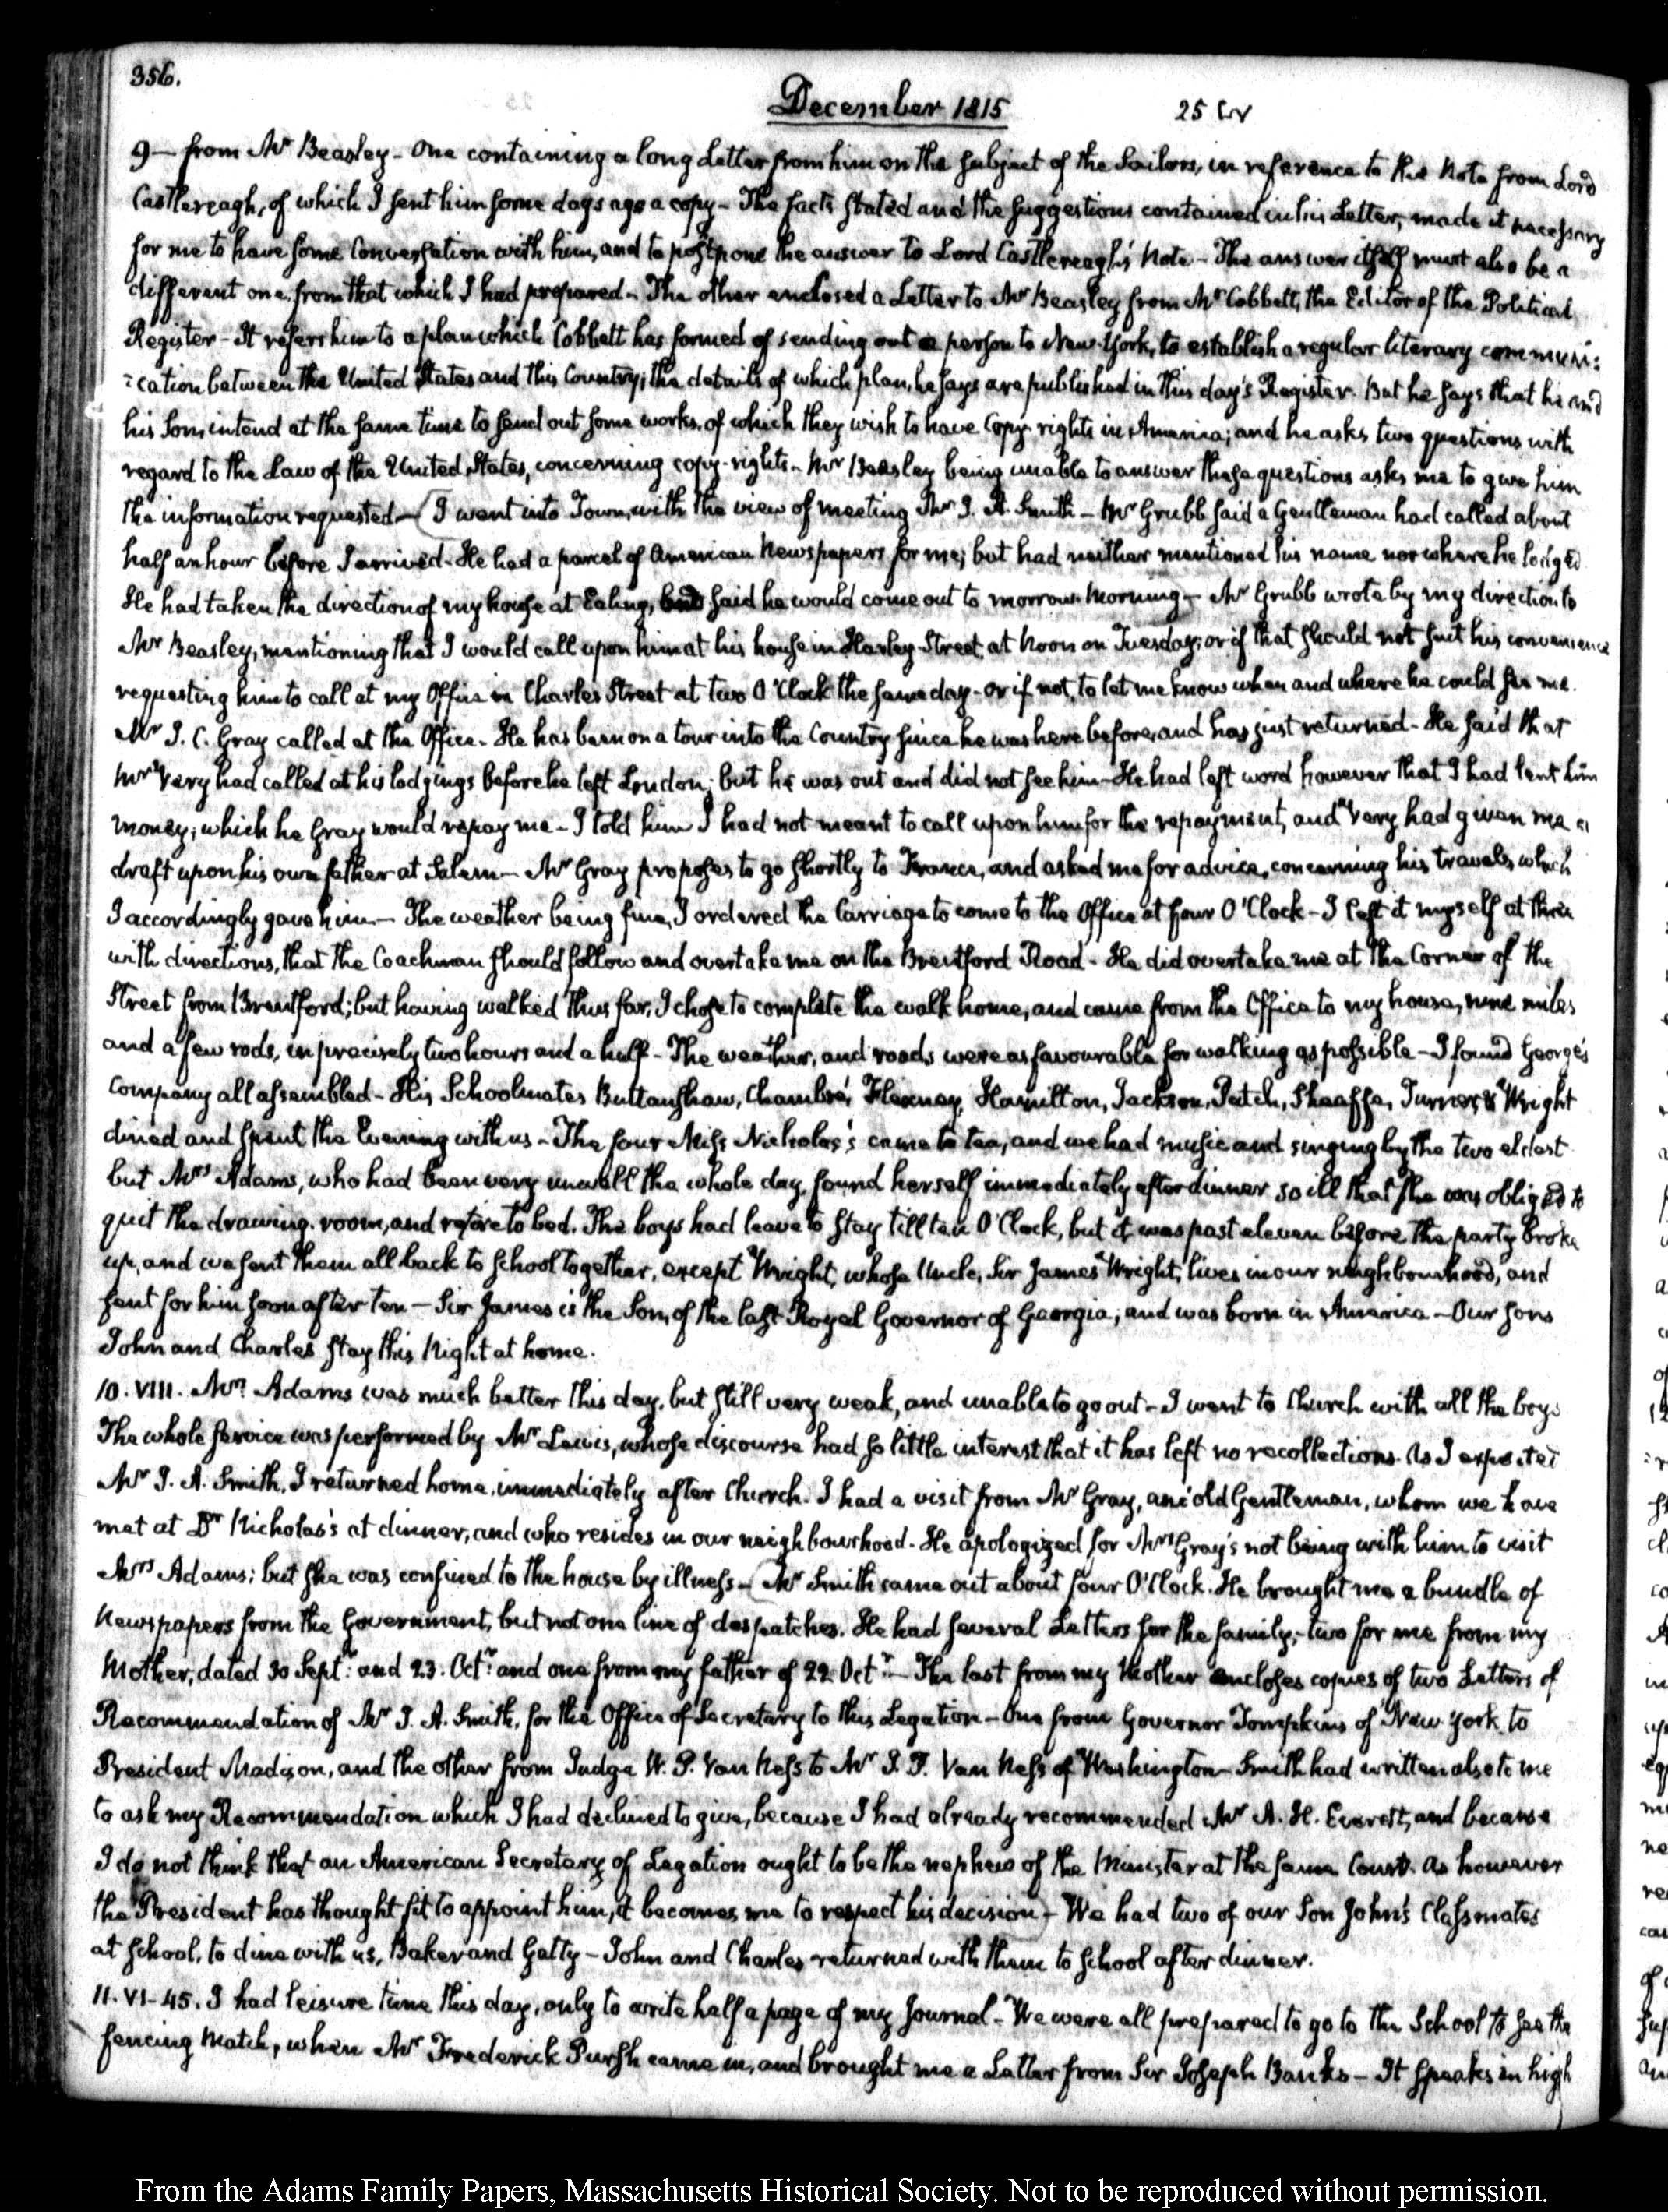 356.
December 1815
25
9 — from Mr Beasley - One containing a long Letter from him on the subject of the Sailors, in reference to the Note from Lord
Castlereagh, of which I sent him some days ago a copy - The facts stated and the suggestions contained in his Letter, made it necessary
for me to have some Conversation with him, and to postpone the answer to Lord Castlereagh's Note - The answer itself must also be a
different one from that which I had prepared - The other enclosed a Letter to Mr Beasley from Mr Cobbett, the Editor of the Political
Register - It refers him to a plan which Cobbett has formed of sending out a person to New-York, to establish a regular literary communi:
:cation between the United States and this Country; the details of which plan, he says are published in this day's Register. But he says that he and
his Son, intend at the same time to send out some works, of which they wish to have Copy-rights in America; and he asks two questions with
regard to the Law of the United States, concerning copy-rights - Mr Beasley being unable to answer these questions asks me to give him
the information requested — I went into Town, with the view of meeting Mr J. A. Smith - Mr Grubb said a Gentleman had called about
half an hour before I arrived - He had a parcel of American Newspapers for me; but had neither mentioned his name nor where he lodged
He had taken the direction of my house at Ealing, and said he would come out to morrow Morning - Mr Grubb wrote by my direction to
Mr Beasley, mentioning that I would call upon him at his house in Harley Street, at Noon on Tuesday; or if that should not suit his convenience
requesting him to call at my Office in Charles Street at two O'Clock the same day - or if not, to let me know when and where he could see me.
Mr J. C. Gray called at the Office - He has been on a tour into the Country since he was here before, and has just returned - He said that
Mr Very had called at his lodgings before he left London; but he was out and did not see him - He had left word however that I had lent him
money; which he Gray would repay me - I told him I had not meant to call upon him for the repayment, and Very had given me a
draft upon his own father at Salem - Mr Gray proposes to go shortly to France, and asked me for advice, concerning his travels, which
I accordingly gave him - The weather being fine, I ordered the Carriage to come to the Office at four O'Clock - I left it myself at three
with directions, that the Coachman should follow and overtake me on the Brentford Road - He did overtake me at the Corner of the
Street from Brentford; but having walked thus far, I chose to complete the walk home, and came from the Office to my house, nine miles
and a few rods, in precisely two hours and a half - The weather, and roads were as favourable for walking as possible - I found George's
Company all assembled - His Schoolmates Buttanshaw, Chambré, Flexney, Hamilton, Jackson, Patch, Shaaffe, Turner, & Wright
dined and spent the Evening with us - The four Miss Nicholas's came to tea, and we had music and singing by the two eldest
but Mrs Adams, who had been very unwell the whole day, found herself immediately after dinner so ill that she was obliged to
quit the drawing-room, and retire to bed. The boys had leave to stay till ten O'Clock, but it was past eleven before the party broke
up, and we sent them all back to school together, except Wright, whose Uncle, Sir James Wright, lives in our neighbourhood, and
sent for him soon after ten - Sir James is the Son, of the last Royal Governor of Georgia; and was born in America - Our Sons
John and Charles stay this Night at home.
10. VIII. Mrs Adams was much better this day, but still very weak, and unable to go out - I went to Church with all the boys
The whole service was performed by Mr Lewis, whose discourse had so little interest that it has left no recollections. As I expected
Mr J. A. Smith, I returned home, immediately after Church. I had a visit from Mr Gray, an old Gentleman, whom we have
met at Dr Nicholas's at dinner, and who resides in our neighbourhood. He apologized for Mrs Gray's not being with him to visit
Mrs Adams; but she was confined to the house by illness - Mr Smith came out about four O'Clock. He brought me a bundle of
Newspapers from the Government, but not one line of despatches. He had several Letters for the family; two for me from my
Mother, dated 30 Septr and 23. Octr and one from my father of 22 Octr - The last from my Mother encloses copies of two Letters of
Recommendation of Mr J. A. Smith, for the Office of Secretary to this Legation - One from Governor Tompkins of New-York to
President Madison, and the other from Judge W. P. Van Ness to Mr J. P. Van Ness of Washington - Smith had written also to me
to ask my Recommendation which I had declined to give, because I had already recommended Mr A. H. Everett, and because
I do not think that an American Secretary of Legation ought to be the nephew of the Minister at the same Court. As however
the President has thought fit to appoint him, it becomes me to respect his decision - We had two of our Son John's Classmates
at School, to dine with us, Baker and Gatty - John and Charles returned with them to School after dinner.
11. VI-45. I had leisure time this day, only to write half a page of my Journal - We were all prepared to go to the School to see the
fencing Match, when Mr Frederick Pursh came in, and brought me a Letter from Sir Joseph Banks - It speaks in high
From the Adams Family Papers, Massachusetts Historical Society. Not to be reproduced without permission.